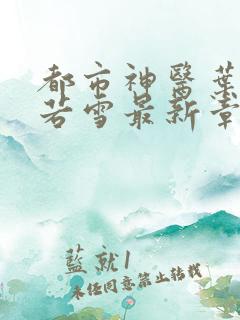 都市神醫葉
若雪最新章
藍就1
未經同意禁止轉載